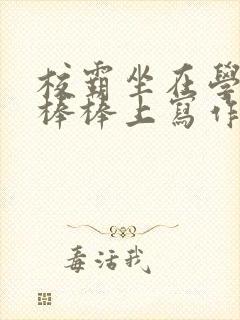 校霸坐在學
棒棒上寫作
毒活我